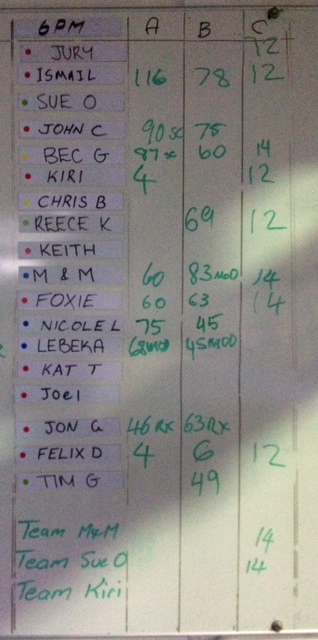 6PM A B C
JURY 12
ISMAIL 116 78 12
SUE O
JOHN C 90 SC 75
BEC G 87 SC 60 14
KIRI 4 12
CHRIS B
REECE K 69 12
KEITH
M & M 60 83 MOD 14
FOXIE 60 63 14
NICOLE L 75 45
LEBEKA 68 MOD 45 MOD
KAT T
Joel
JON G 46 RX 63 RX
FELIX D 4 6 12
TIM G 49
Team M&M 14
Team Sue O 14
Team Kiri